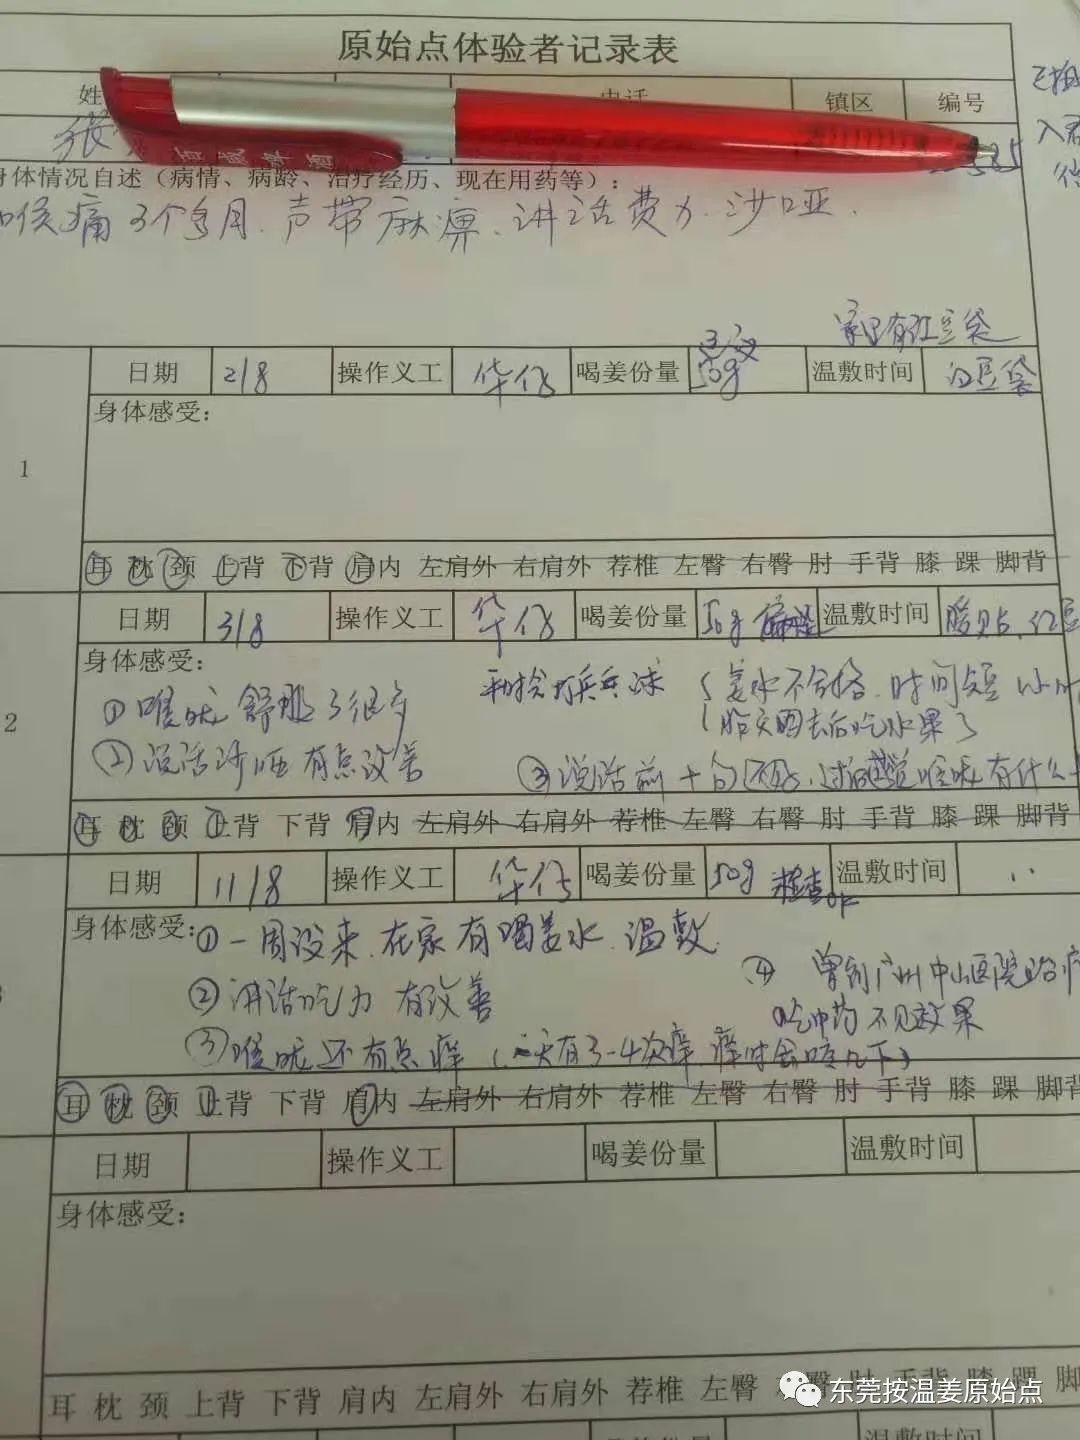 原始点体验者记录表
姓 电话 镇区 编号
张
百威啤酒
身体情况自述（病情、病龄、治疗经历、现在用药等）：
喉痛3个多月.声带麻痹.讲话费力.沙哑.
家里有红豆袋
日期 2/8 操作义工 华仔 喝姜份量 50g 温敷时间 红豆袋
1
身体感受：
耳 枕 颈 上背 下背 肩内 左肩外 右肩外 荐椎 左臀 右臀 肘 手背 膝 踝 脚背
日期 3/8 操作义工 华仔 喝姜份量 50g 温敷时间 暖贴、红豆
2
身体感受：
①喉咙舒服了很多 打乒乓球 姜水不合格.时间短
昨天回去后吃水果了
②说话沙哑有点改善 ③说话前十句还好.过后感觉喉咙有什么
耳 枕 颈 上背 下背 肩内 左肩外 右肩外 荐椎 左臀 右臀 肘 手背 膝 踝 脚背
日期 11/8 操作义工 华仔 喝姜份量 50g 检查OK 温敷时间
身体感受：①一周没来.在家有喝姜水.温敷.
②讲话吃力有改善 ④曾到广州中山医院治疗
吃中药不见效果
③喉咙还有点痒(一天有3-4次痒.痒时会咳几下)
耳 枕 颈 上背 下背 肩内 左肩外 右肩外 荐椎 左臀 右臀 肘 手背 膝 踝 脚背
日期 操作义工 喝姜份量 温敷时间
身体感受：
耳 枕 颈 上背 下背 肩内 左肩外 右肩外 荐椎 左臀 肘 手背 膝 踝 脚
东莞按温姜原始点